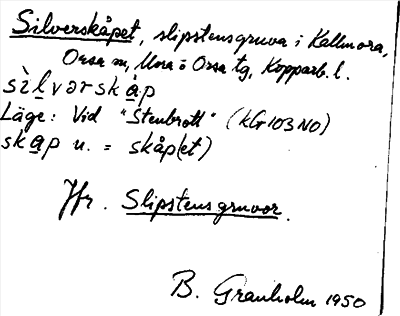 Silverskåpet, slipstensgruva i Kallmora,
Orsa sn, Mora o Orsa tg, Kopparb. l.
sìḷvərskáp
Läge: Vid "Stenbrott" (kG103NO)
skap n. = skåp(et)
Jfr. Slipstensgruvor.
B. Granholm 1950